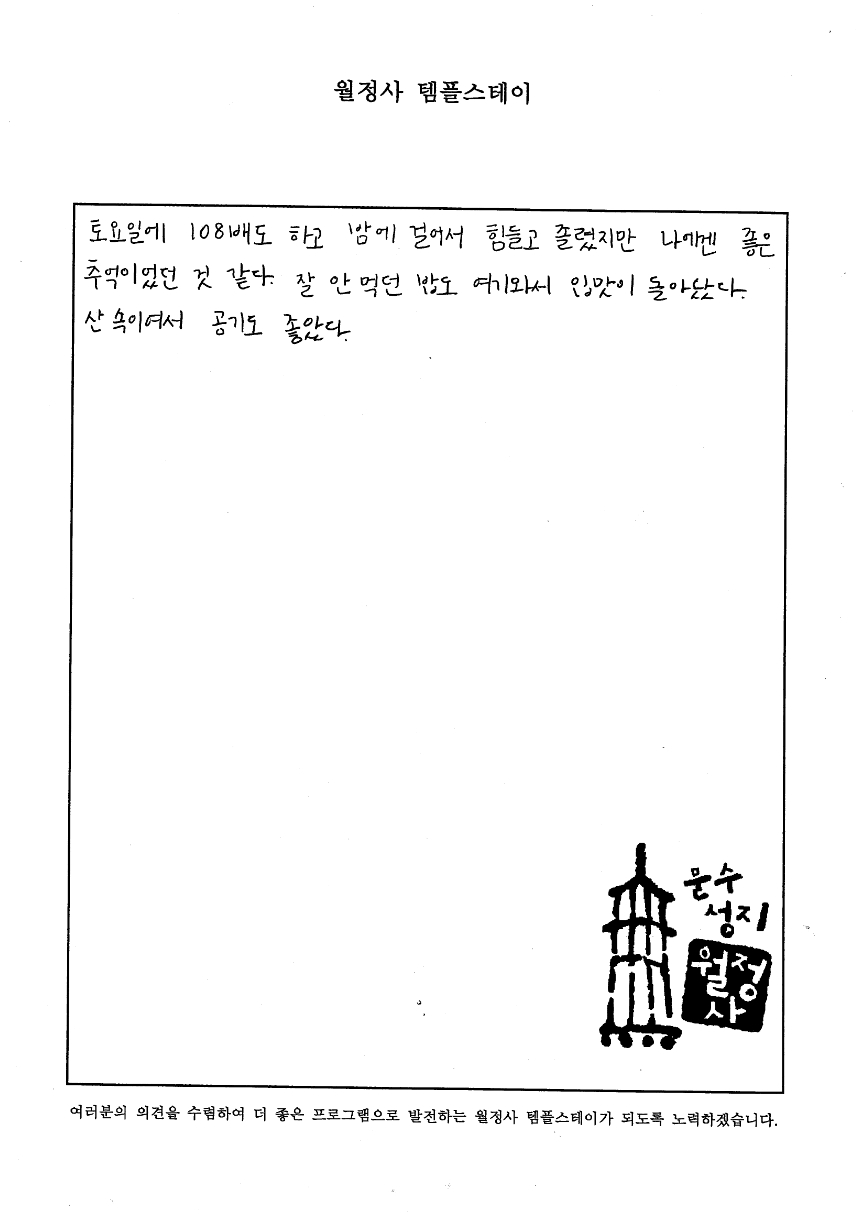 월정사 템플스테이
토요일에 108배도 하고 밤에 걸어서 힘들고 졸렸지만 나에겐 좋은
추억이었던 것 같다. 잘 안 먹던 밥도 여기와서 입맛이 돌아났다.
산 속이여서 공기도 좋았다.
문수
성지
월정
사
여러분의 의견을 수렴하여 더 좋은 프로그램으로 발전하는 월정사 템플스테이가 되도록 노력하겠습니다.